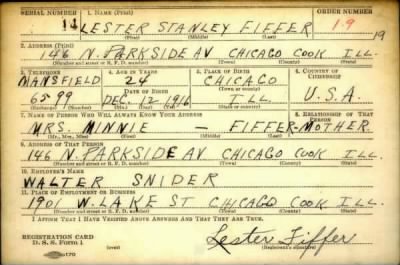 SERIAL NUMBER 1. NAME (Print) ORDER NUMBER
11 LESTER STANLEY FIFFER 19
(First) (Middle) (Last)
2. ADDRESS (Print)
146 N. PARKSIDE AV CHICAGO COOK ILL.
(Number and street or R. F. D. number) (Town) (County) (State)
3. TELEPHONE 4. AGE IN YEARS 5. PLACE OF BIRTH 6. COUNTRY OF CITIZENSHIP
MANSFIELD 24 CHICAGO
DATE OF BIRTH (Town or county)
6599 DEC. 12 1916 ILL. U.S.A.
(Exchange) (Number) (Mo.) (Day) (Yr.) (State or country)
7. NAME OF PERSON WHO WILL ALWAYS KNOW YOUR ADDRESS 8. RELATIONSHIP OF THAT PERSON
MRS. MINNIE — FIFFER-MOTHER.
(Mr., Mrs., Miss) (First) (Middle) (Last)
9. ADDRESS OF THAT PERSON
146 N. PARKSIDE AV CHICAGO COOK ILL.
(Number and street or R. F. D. number) (Town) (County) (State)
10. EMPLOYER'S NAME
WALTER SNIDER
11. PLACE OF EMPLOYMENT OR BUSINESS
1901 W. LAKE ST CHICAGO COOK ILL
(Number and street or R. F. D. number) (Town) (County) (State)
I AFFIRM THAT I HAVE VERIFIED ABOVE ANSWERS AND THAT THEY ARE TRUE.
REGISTRATION CARD
D. S. S. Form 1 (over) Lester Fiffer
(Registrant's signature)